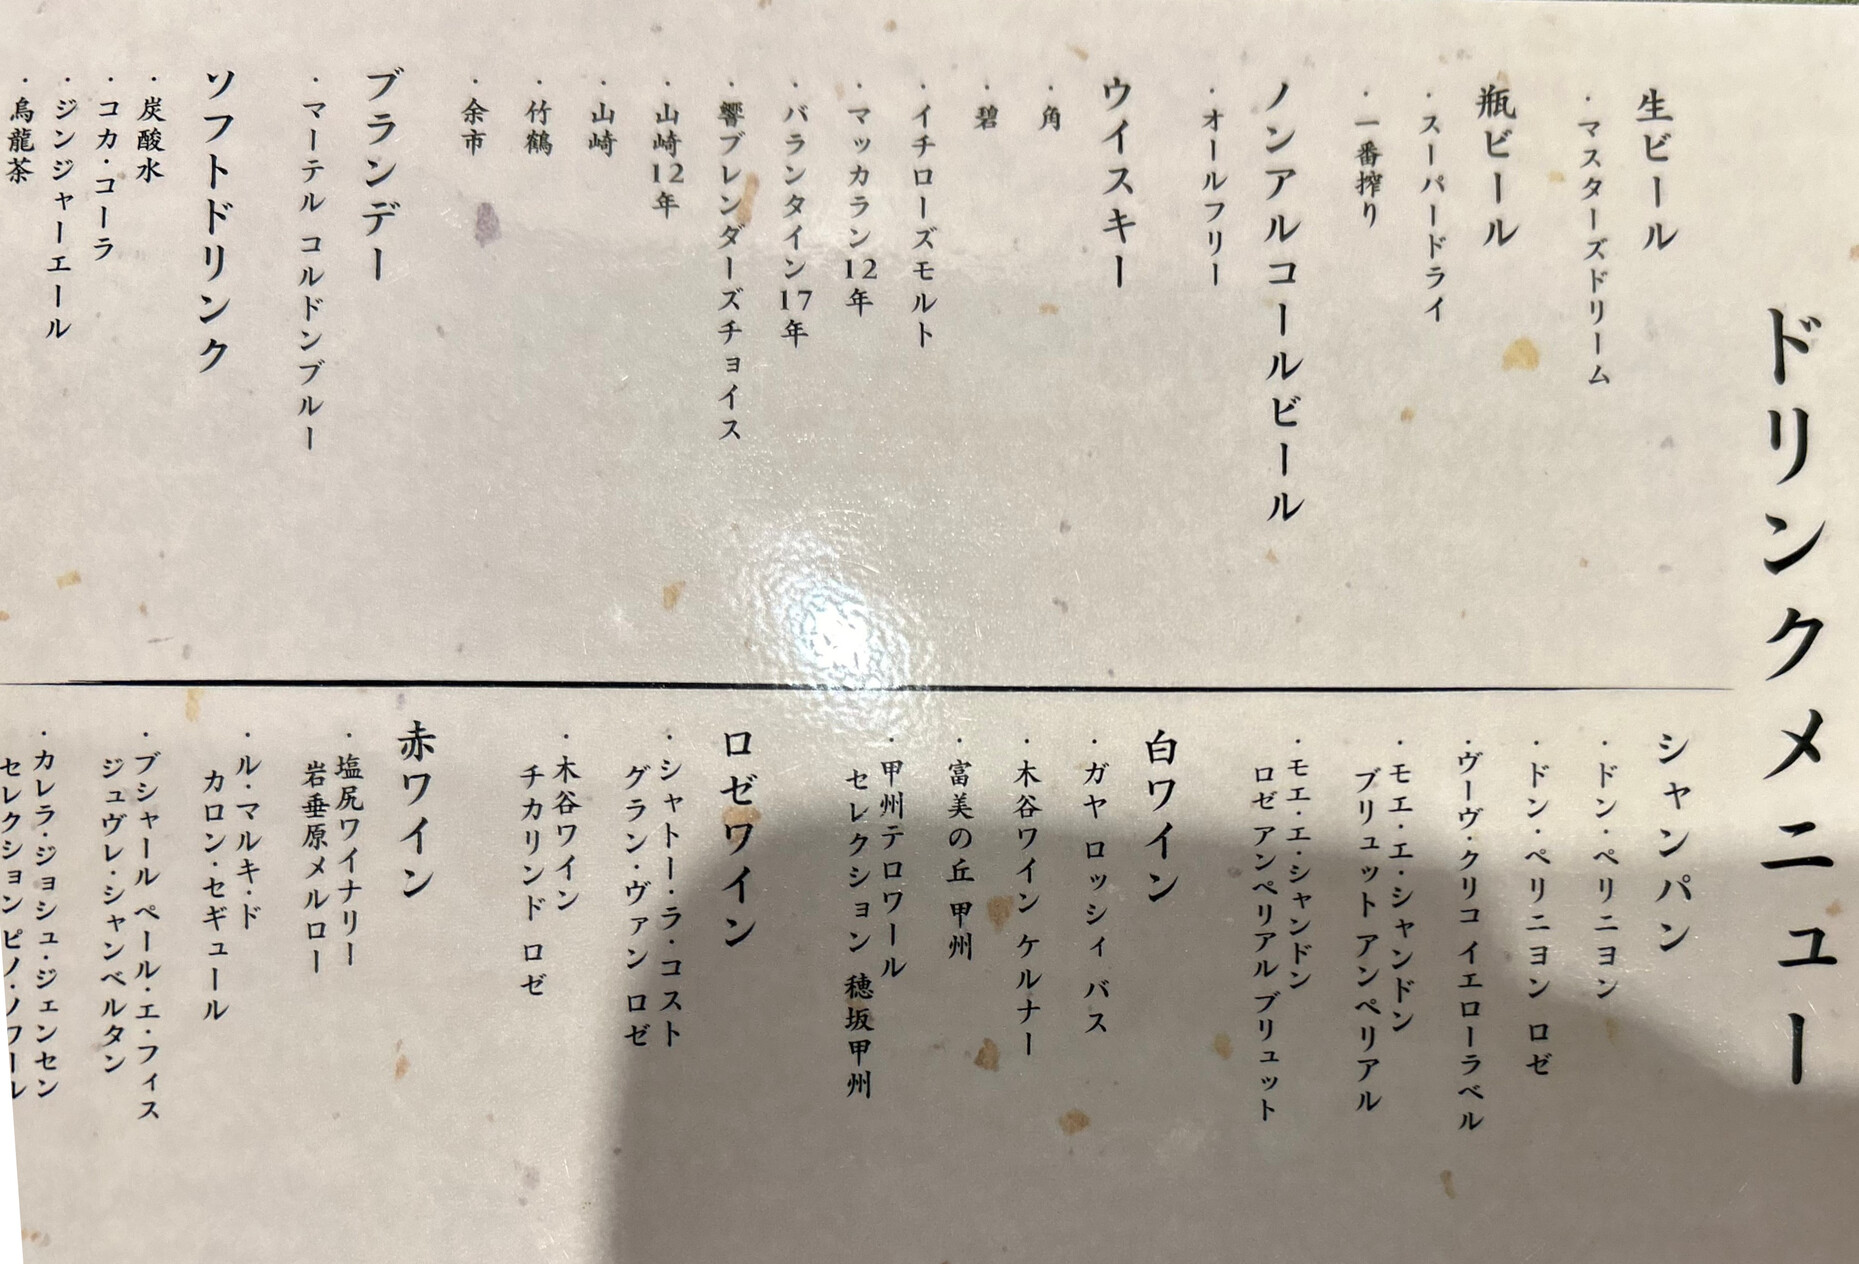 ドリンクメニュー
生ビール
・マスターズドリーム
瓶ビール
・スーパードライ
・一番搾り
ノンアルコールビール
・オールフリー
ウイスキー
・角
・碧
・イチローズモルト
・マッカラン12年
・バランタイン17年
・響ブレンダーズチョイス
・山崎12年
・山崎
・竹鶴
・余市
ブランデー
・マーテル コルドンブルー
ソフトドリンク
・炭酸水
・コカ・コーラ
・ジンジャーエール
・烏龍茶
シャンパン
・ドン・ペリニヨン
・ドン・ペリニヨン ロゼ
・ヴーヴ・クリコ イエローラベル
・モエ・エ・シャンドン
ブリュット アンペリアル
・モエ・エ・シャンドン
ロゼ アンペリアル ブリュット
白ワイン
・ガヤ ロッシィ バス
・木谷ワイン ケルナー
・富美の丘 甲州
・甲州テロワール
セレクション 穂坂甲州
ロゼワイン
・シャトー・ラ・コスト
グラン・ヴァン ロゼ
・木谷ワイン
チカリンド ロゼ
赤ワイン
・塩尻ワイナリー
岩垂原メルロー
・ル・マルキ・ド
カロン・セギュール
・ブシャール ペール・エ・フィス
ジュヴレ・シャンベルタン
・カレラ・ジョシュ・ジェンセン
セレクション ピノ・ノワール